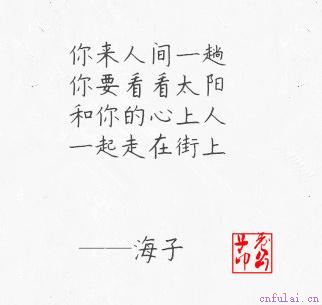 你来人间一趟
你要看看太阳
和你的心上人
一起走在街上
——海子
cnfulai.cn